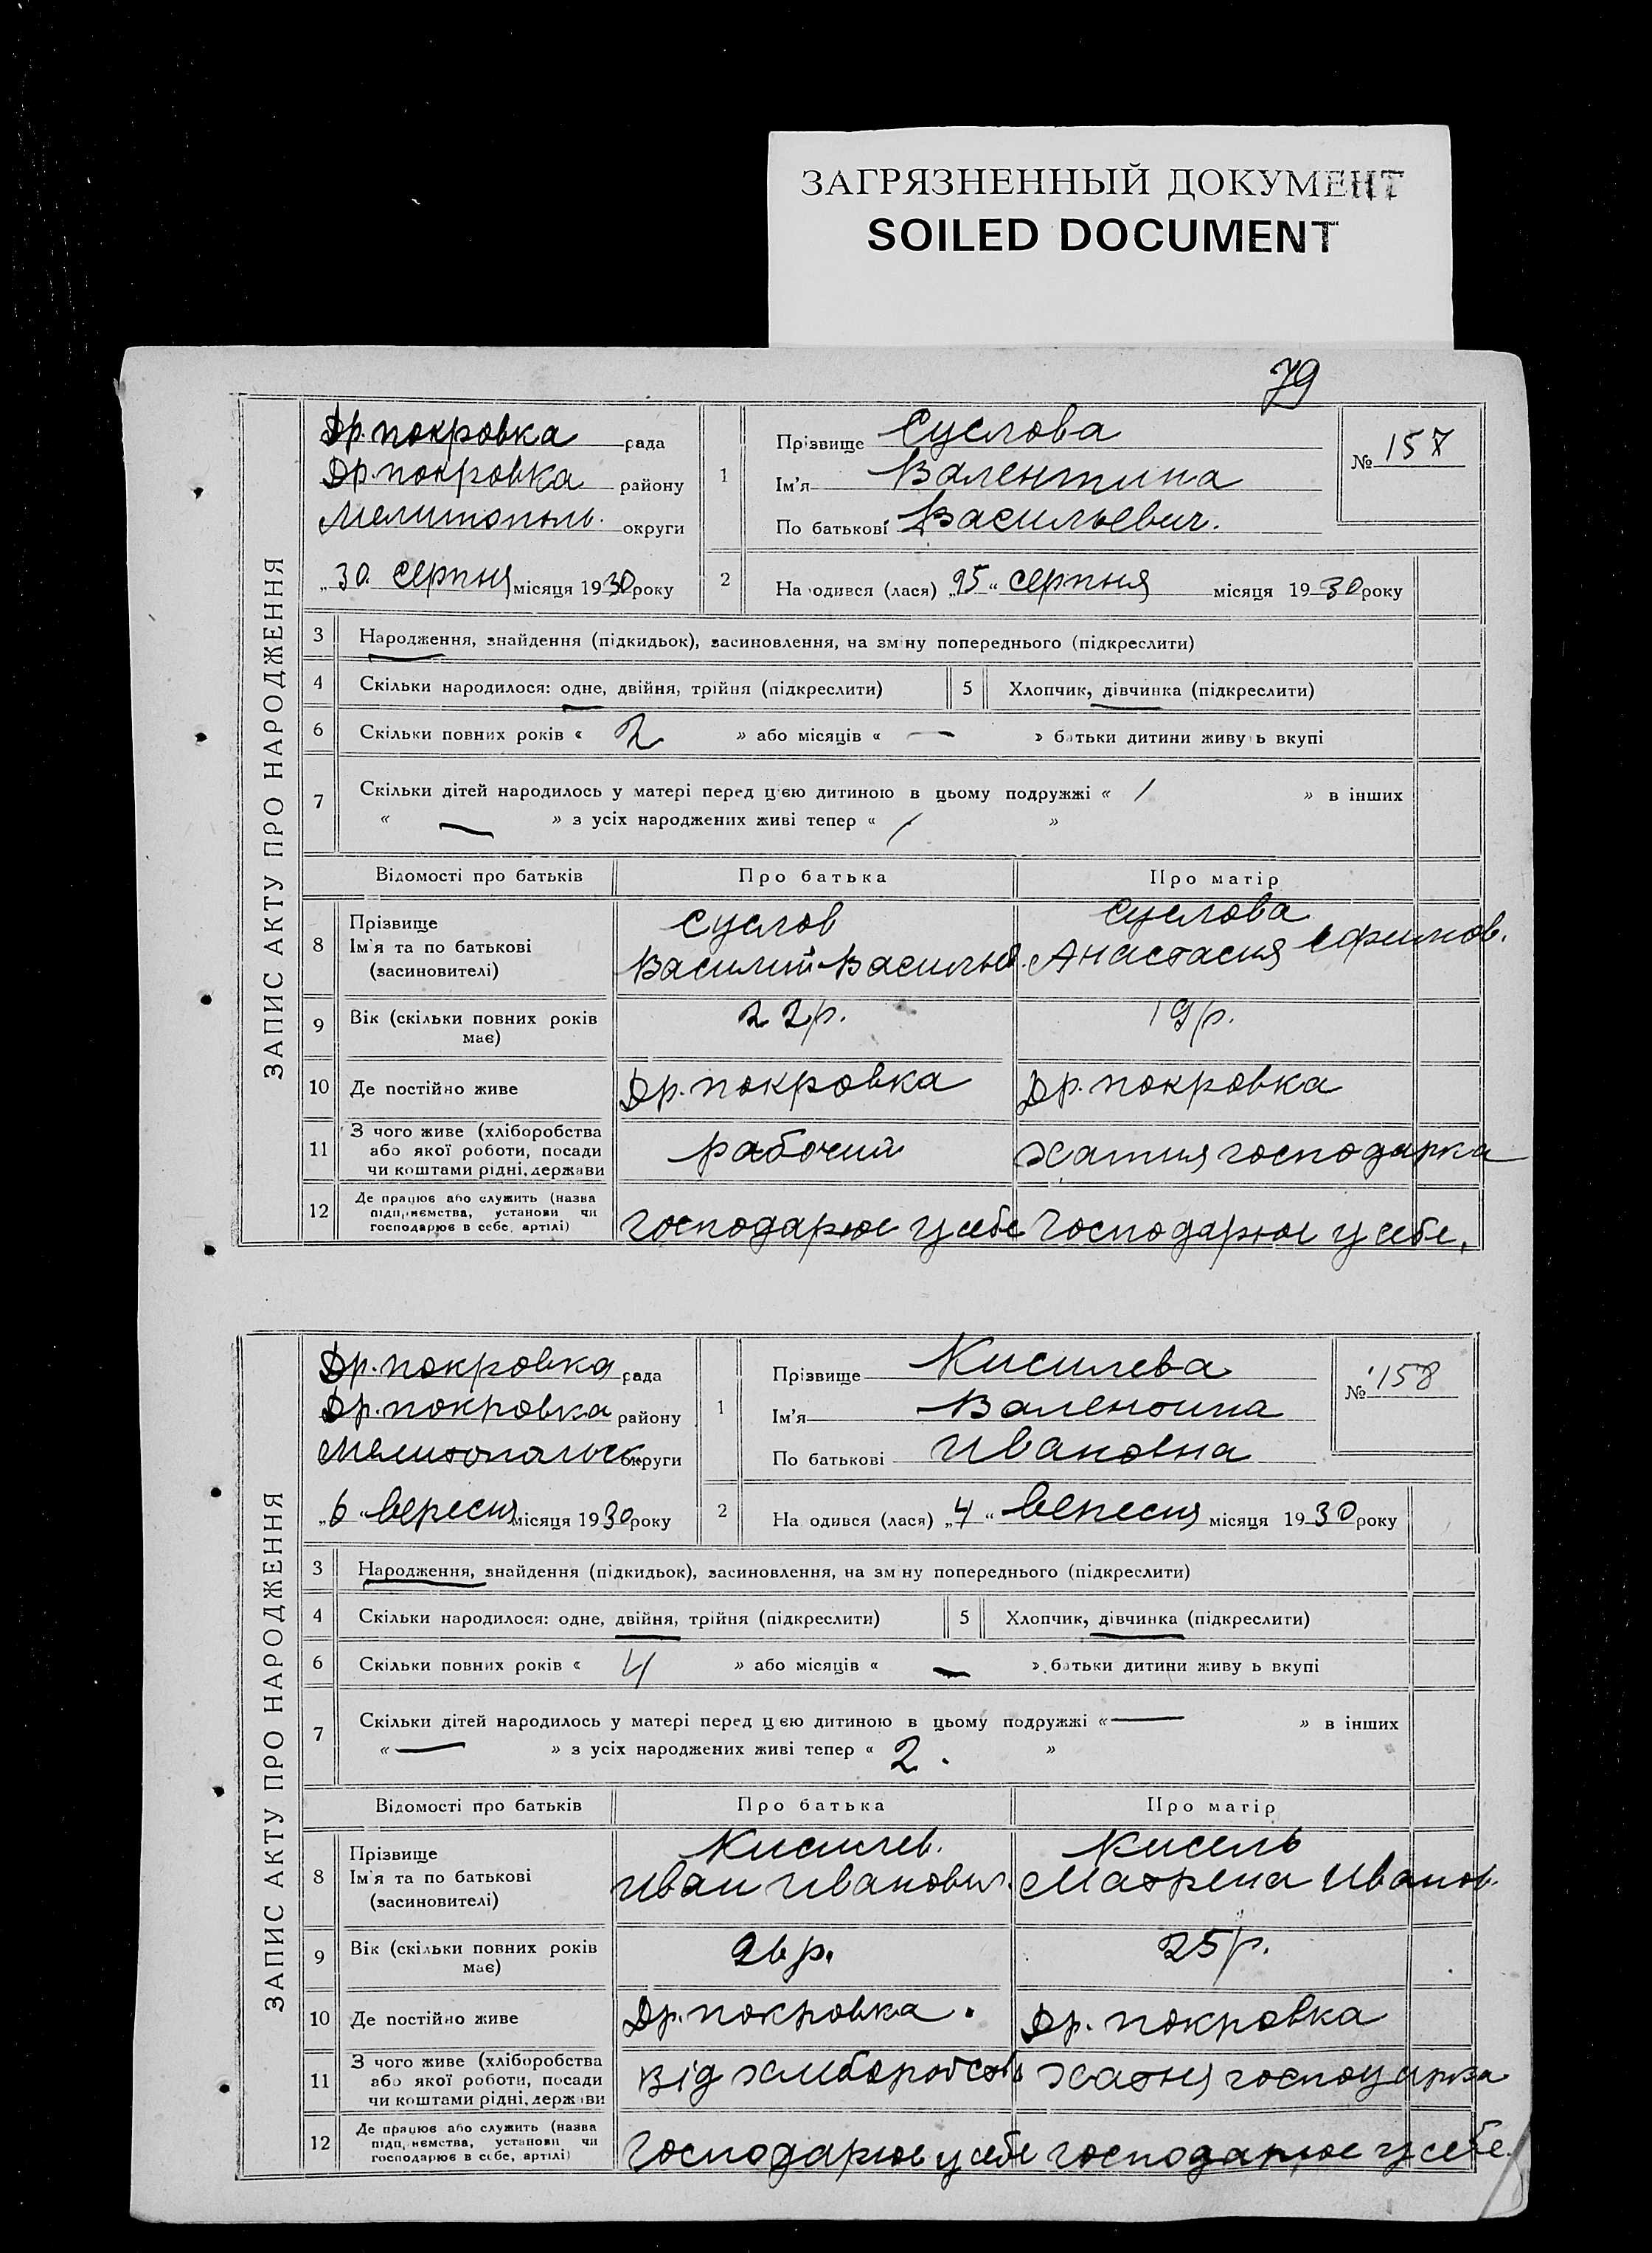 ЗАГРЯЗНЕННЫЙ ДОКУМЕНТ
SOILED DOCUMENT
79
ЗАПИС АКТУ ПРО НАРОДЖЕННЯ
Др. покровка рада
Др. покровка району
Мелитополь. округи
„30 серпня місяця 1930 року
1
Прізвище Суслова
Ім'я Валентина
По батькові Васильевич.
№ 157
2 На одився (лася) „25“ серпня місяця 1930 року
3 Народження, знайдення (підкидьок), засиновлення, на зміну попереднього (підкреслити)
4 Скільки народилося: одне, двійня, трійня (підкреслити) 5 Хлопчик, дівчинка (підкреслити)
6 Скільки повних років « 2 » або місяців « — » батьки дитини живу ь вкупі
7 Скільки дітей народилось у матері перед цією дитиною в цьому подружжі « 1 » в інших
« — » з усіх народжених живі тепер « 1 »
Відомості про батьків Про батька Про матір
8 Прізвище Суслов Суслова
Ім'я та по батькові Василий Васильев. Анастасия Ефимов.
(засиновителі)
9 Вік (скільки повних років має) 22 р. 19 р.
10 Де постійно живе Др. покровка Др. покровка
11 З чого живе (хліборобства
або якої роботи, посади рабочий хатня господарка
чи коштами рідні, держави
12 Де працює або служить (назва
підприємства, установи чи
господарює в себе, артілі) господарює у себе господарює у себе.
ЗАПИС АКТУ ПРО НАРОДЖЕННЯ
Др. покровка рада
Др. покровка району
Мелитопольск. округи
„6“ вересня місяця 1930 року
1
Прізвище Кисилева
Ім'я Валентина
По батькові Ивановна
№ 158
2 На одився (лася) „4“ вересня місяця 1930 року
3 Народження, знайдення (підкидьок), засиновлення, на зміну попереднього (підкреслити)
4 Скільки народилося: одне, двійня, трійня (підкреслити) 5 Хлопчик, дівчинка (підкреслити)
6 Скільки повних років « 4 » або місяців « — » батьки дитини живу ь вкупі
7 Скільки дітей народилось у матері перед цією дитиною в цьому подружжі « — » в інших
« — » з усіх народжених живі тепер « 2. »
Відомості про батьків Про батька Про матір
8 Прізвище Кисилев. Кисель
Ім'я та по батькові Иван Иванович. Матрена Иванов.
(засиновителі)
9 Вік (скільки повних років має) 26 р. 25 р.
10 Де постійно живе Др. покровка. Др. покровка
11 З чого живе (хліборобства
або якої роботи, посади від хлиборобств хатня господарка
чи коштами рідні, держави
12 Де працює або служить (назва
підприємства, установи чи
господарює в себе, артілі) господарює у себе господарює у себе.